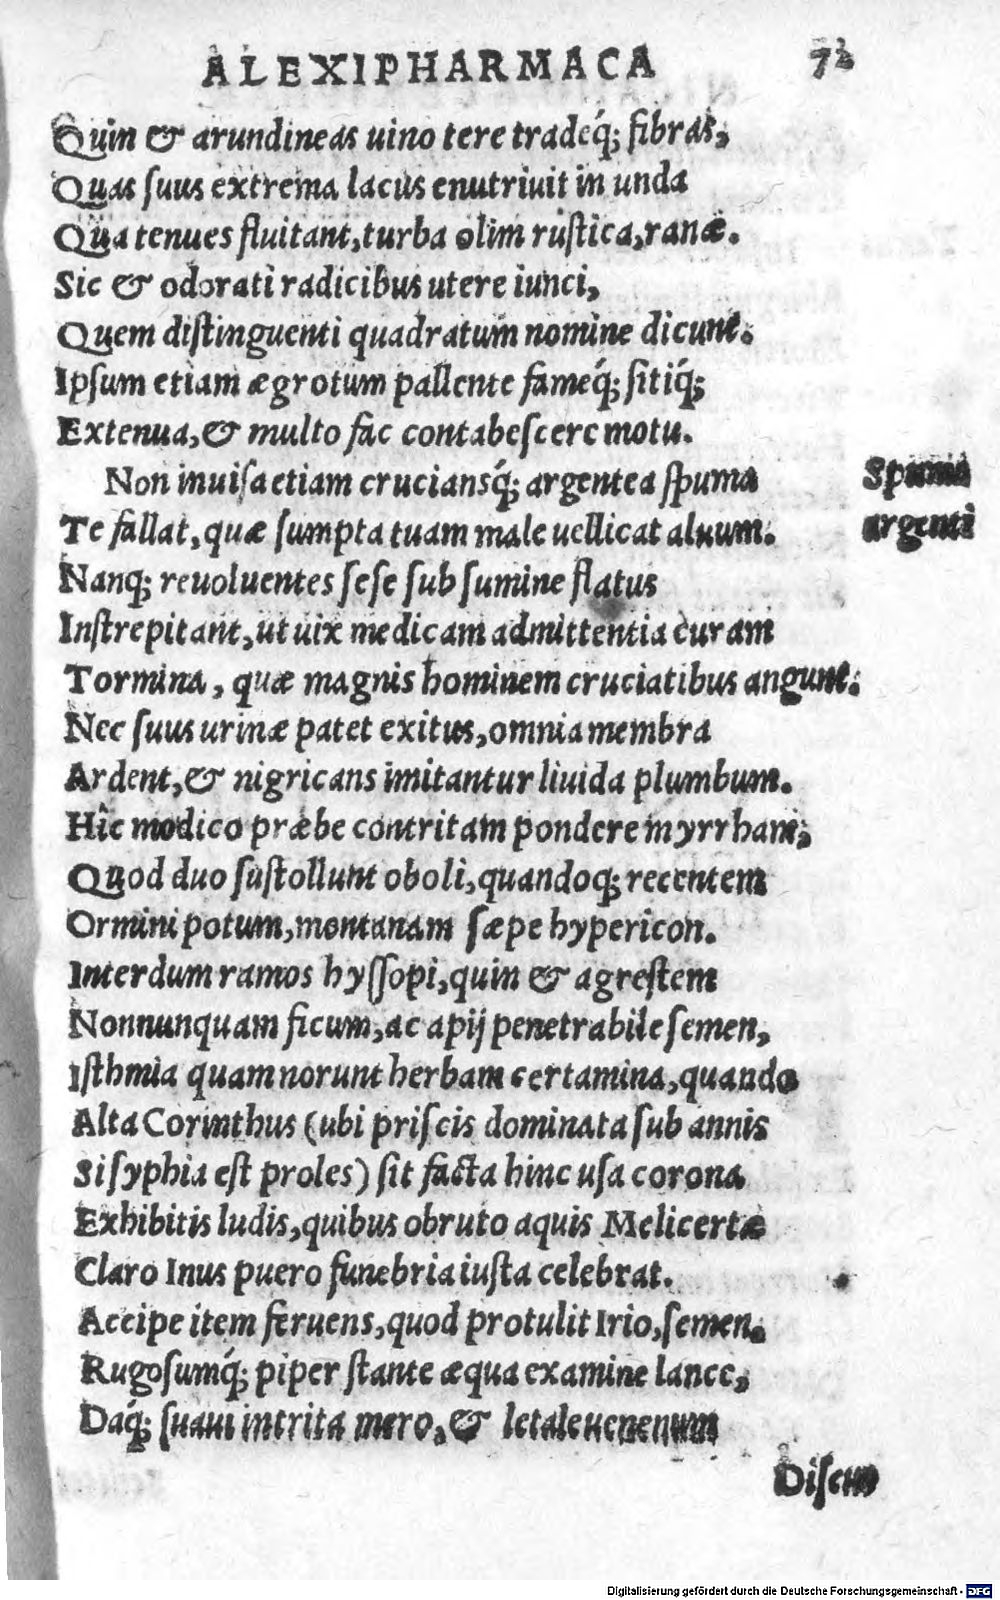 ALEXIPHARMACA 72
Quin & arundineas uino tere tradéq; fibras,
Quas suus extrema lacus enutriuit in unda
Qua tenues fluitant, turba olim rustica, ranæ.
Sic & odorati radicibus utere iunci,
Quem distinguenti quadratum nomine dicunt.
Ipsum etiam ægrotum pallente faméq; sitíq;
Extenua, & multo fac contabescere motu.
Non inuisa etiam cruciansq́; argentea spuma
Spuma
Te fallat, quæ sumpta tuam male uellicat aluum.
argenti
Nanq; reuoluentes sese sub sumine flatus
Instrepitant, ut uix medicam admittentia curam
Tormina, quæ magnis hominem cruciatibus angunt.
Nec suus urinæ patet exitus, omnia membra
Ardent, & nigricans imitantur liuida plumbum.
Hîc modico præbe contritam pondere myrrham,
Quod duo sustollunt oboli, quandoq; recentem
Ormini potum, montanam sæpe hypericon.
Interdum ramos hyssopi, quin & agrestem
Nonnunquam ficum, ac apij penetrabile semen,
Isthmia quam norunt herbam certamina, quando
Alta Corinthus (ubi priscis dominata sub annis
Sisyphia est proles) sit facta hinc usa corona
Exhibitis ludis, quibus obruto aquis Melicertæ
Claro Inus puero funebria iusta celebrat.
Accipe item feruens, quod protulit Irio, semen.
Rugosumq́; piper stante æqua examine lance,
Dáq; suaui intrita mero, & letale uenenum
Discu
Digitalisierung gefördert durch die Deutsche Forschungsgemeinschaft - DFG